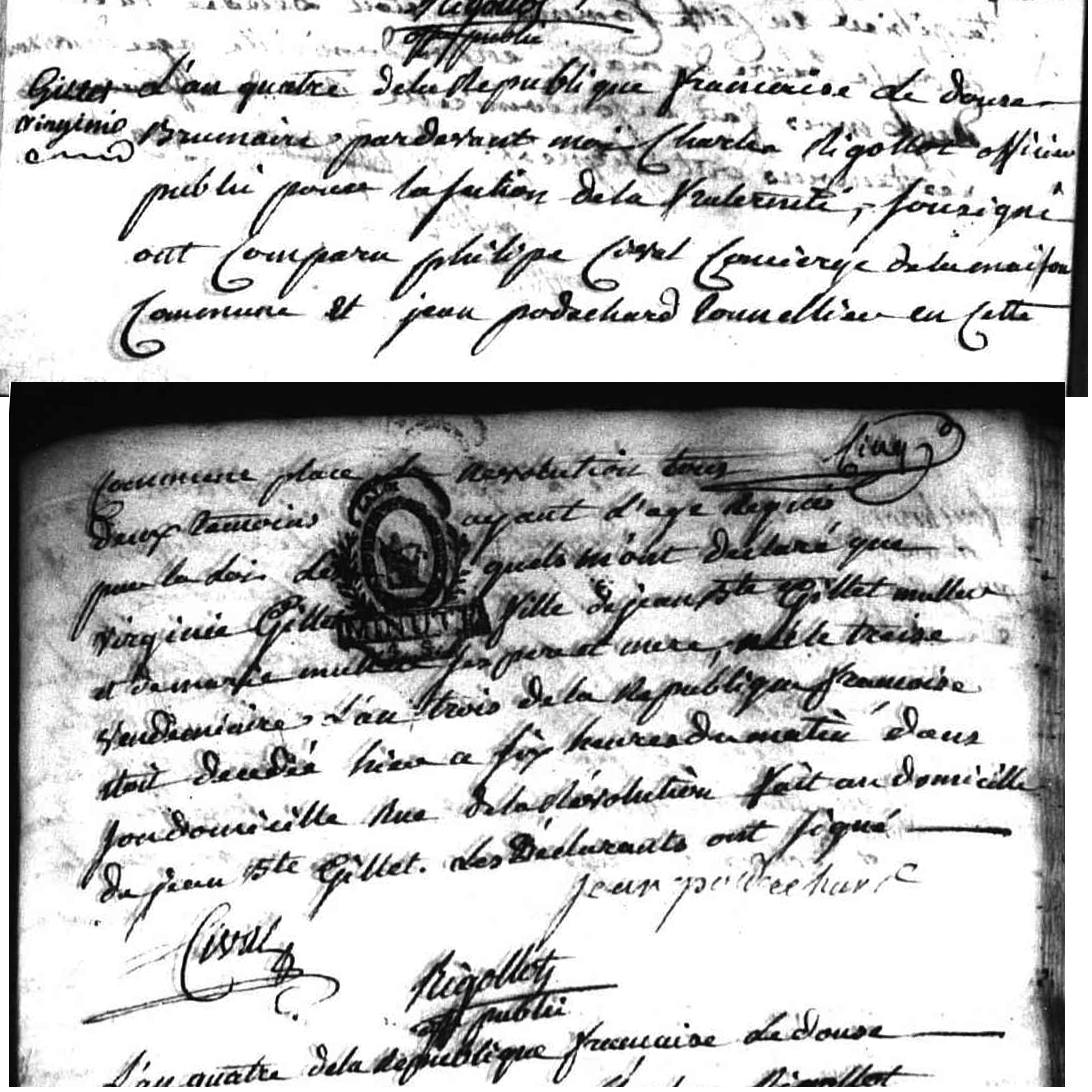 Rigollot
off public
Gillet L'an quatre dela Republique francaise Le douze
virginie Brumaire pardevant moi Charles Rigollot officier
public pour la section dela fraternité, soussigné
ont Comparu philipe Cival Concierge dela maison
Commune et jean podechard tonnellier en Cette
Commune place de Revolution tous
deux temoins ayant d'age Requis
par la Loi Les quels m'ont declaré que
virginie Gillet fille de jean Bte Gillet
MINUTE
et de marie ses pere et mere, née le treise
Vendemiaire L'an trois dela Republique francaise
étoit decedée hier a six heures du matin dans
son domicille Rue dela Révolution fait au domicille
de jean Bte Gillet. Les Déclarants ont signé
jean podechard
Cival
Rigollot
off public
L'an quatre dela Republique francaise Le douze
Rigollot